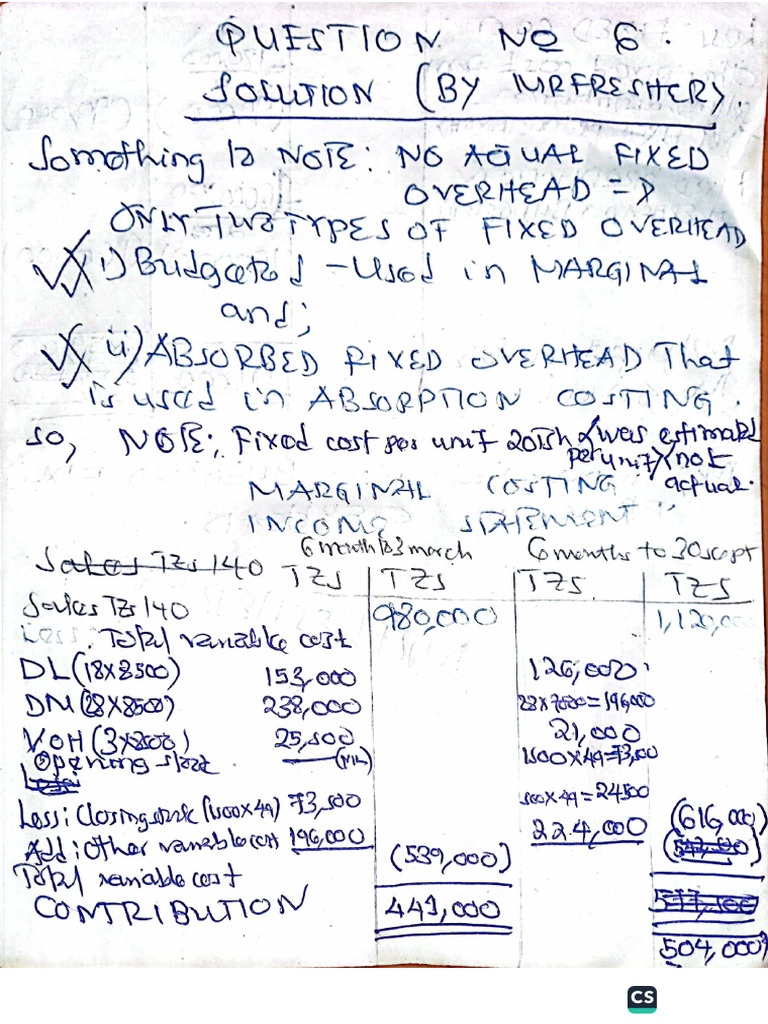 QUESTION NO 6.
SOLUTION (BY MRFRESHER).
Something to NOTE: NO ACTUAL FIXED
OVERHEAD =>
ONLY TWO TYPES OF FIXED OVERHEAD
i) Budgeted - Used in MARGINAL
and;
ii) ABSORBED FIXED OVERHEAD That
is used in ABSORPTION COSTING.
so, NOTE:, Fixed cost per unit 20Tsh was estimated
per unit not
actual.
MARGINAL COSTING
INCOME STATEMENT
6 month to 3 march 6 months to 30 sept
Sales TZs 140 TZS TZS TZS TZS
Sales TZs 140 980,000 1,120,000
Less: Total variable cost
DL (18x8500) 153,000 126,000
DM (28x8500) 238,000 28x7000=196,000
VOH (3x8500) 25,500 21,000
Opening stock (NIL) 1500x49=73,500
Less: Closing stock (1500x49) 73,500 500x49=24500
Add: Other variable cost 196,000 224,000 (616,000)
(539,000)
Total variable cost
CONTRIBUTION 441,000
504,000
CS